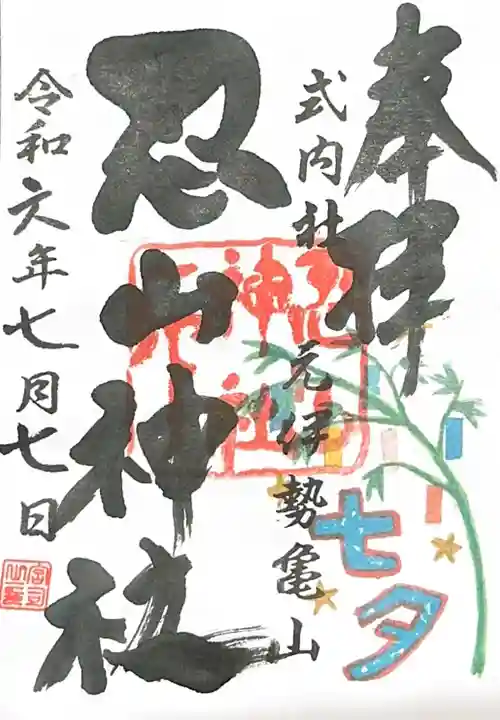 奉拝
式内社 元伊勢亀山
忍山神社
令和六年七月七日
七夕
忍山神社